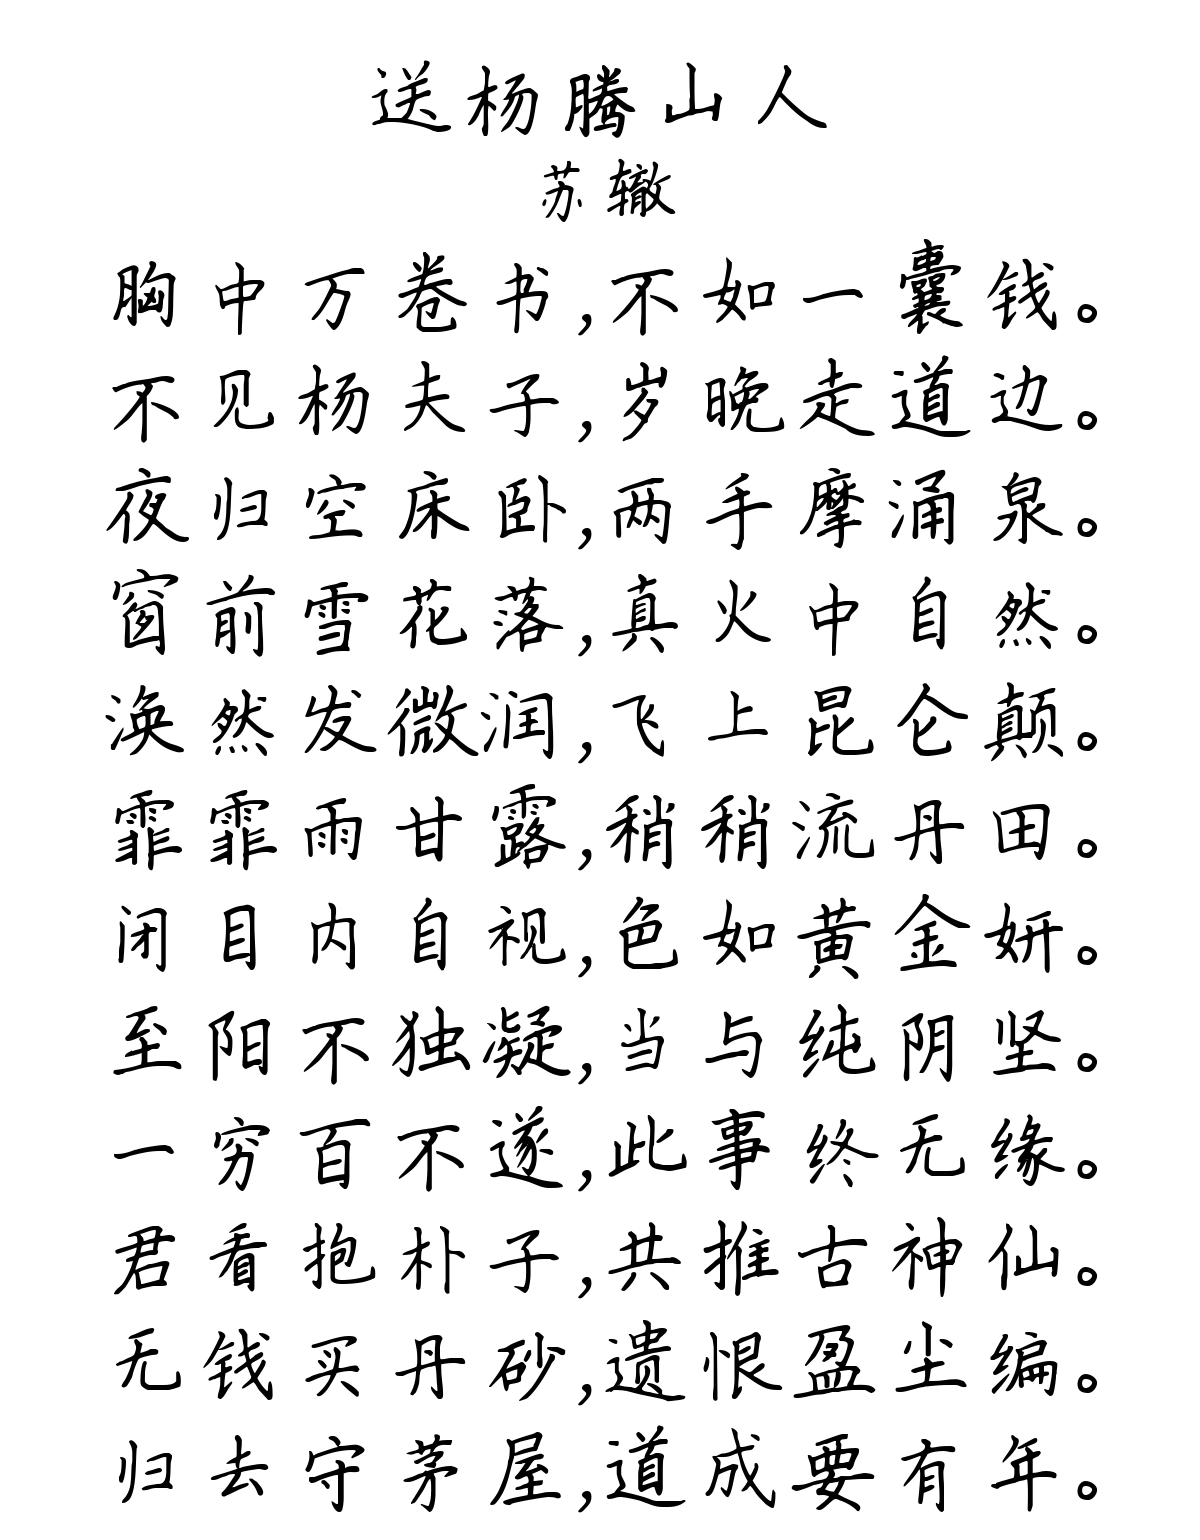 送杨腾山人
苏辙
胸中万卷书,不如一囊钱。
不见杨夫子,岁晚走道边。
夜归空床卧,两手摩涌泉。
窗前雪花落,真火中自然。
涣然发微润,飞上昆仑颠。
霏霏雨甘露,稍稍流丹田。
闭目内自视,色如黄金妍。
至阳不独凝,当与纯阴坚。
一穷百不遂,此事终无缘。
君看抱朴子,共推古神仙。
无钱买丹砂,遗恨盈尘编。
归去守茅屋,道成要有年。